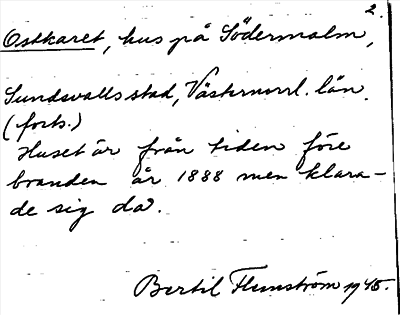 2.
Ostkaret, hus på Södermalm,
Sundsvalls stad, Västernorrl. län.
(forts.)
Huset är från tiden före
branden år 1888 men klara-
de sig då.
Bertil Flemström 1945.